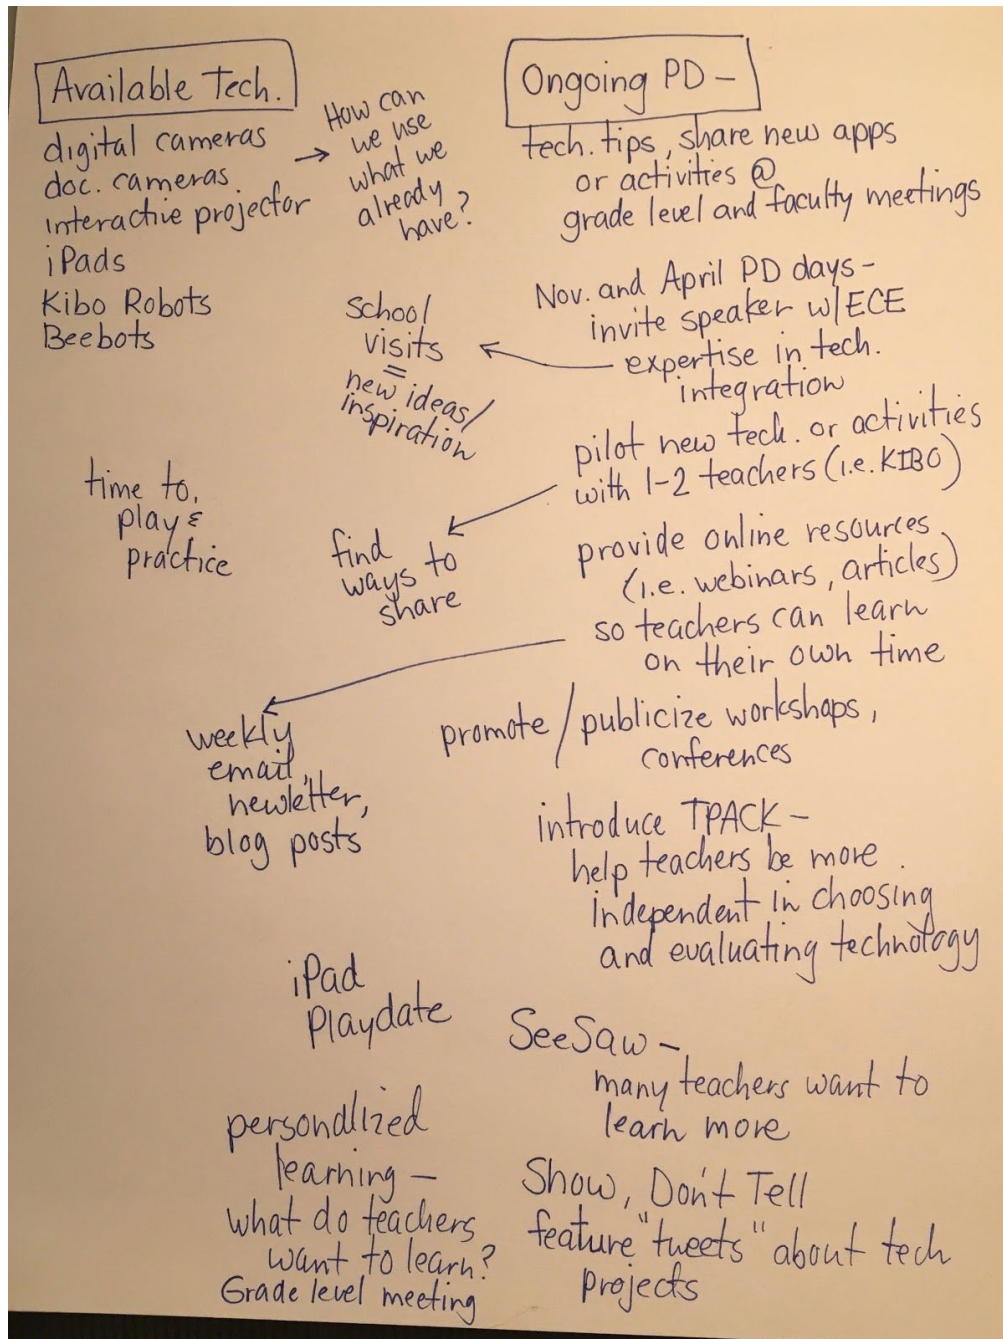 Available Tech.
digital cameras
doc. cameras
interactive projector
iPads
Kibo Robots
Beebots
→ How can
we use
what we
already
have?
school
visits
=
new ideas/
inspiration
time to
play &
practice
find
ways to
share
weekly
email,
newletter,
blog posts
iPad
Playdate
personalized
learning –
what do teachers
want to learn?
Grade level meeting
Ongoing PD –
tech. tips, share new apps
or activities @
grade level and faculty meetings
Nov. and April PD days –
invite speaker w/ECE
expertise in tech.
integration
pilot new tech. or activities
with 1-2 teachers (i.e. KIBO)
provide online resources
(i.e. webinars, articles)
so teachers can learn
on their own time
promote / publicize workshops,
conferences
introduce TPACK –
help teachers be more
independent in choosing
and evaluating technology
SeeSaw –
many teachers want to
learn more
Show, Don't Tell
feature "tweets" about tech
projects